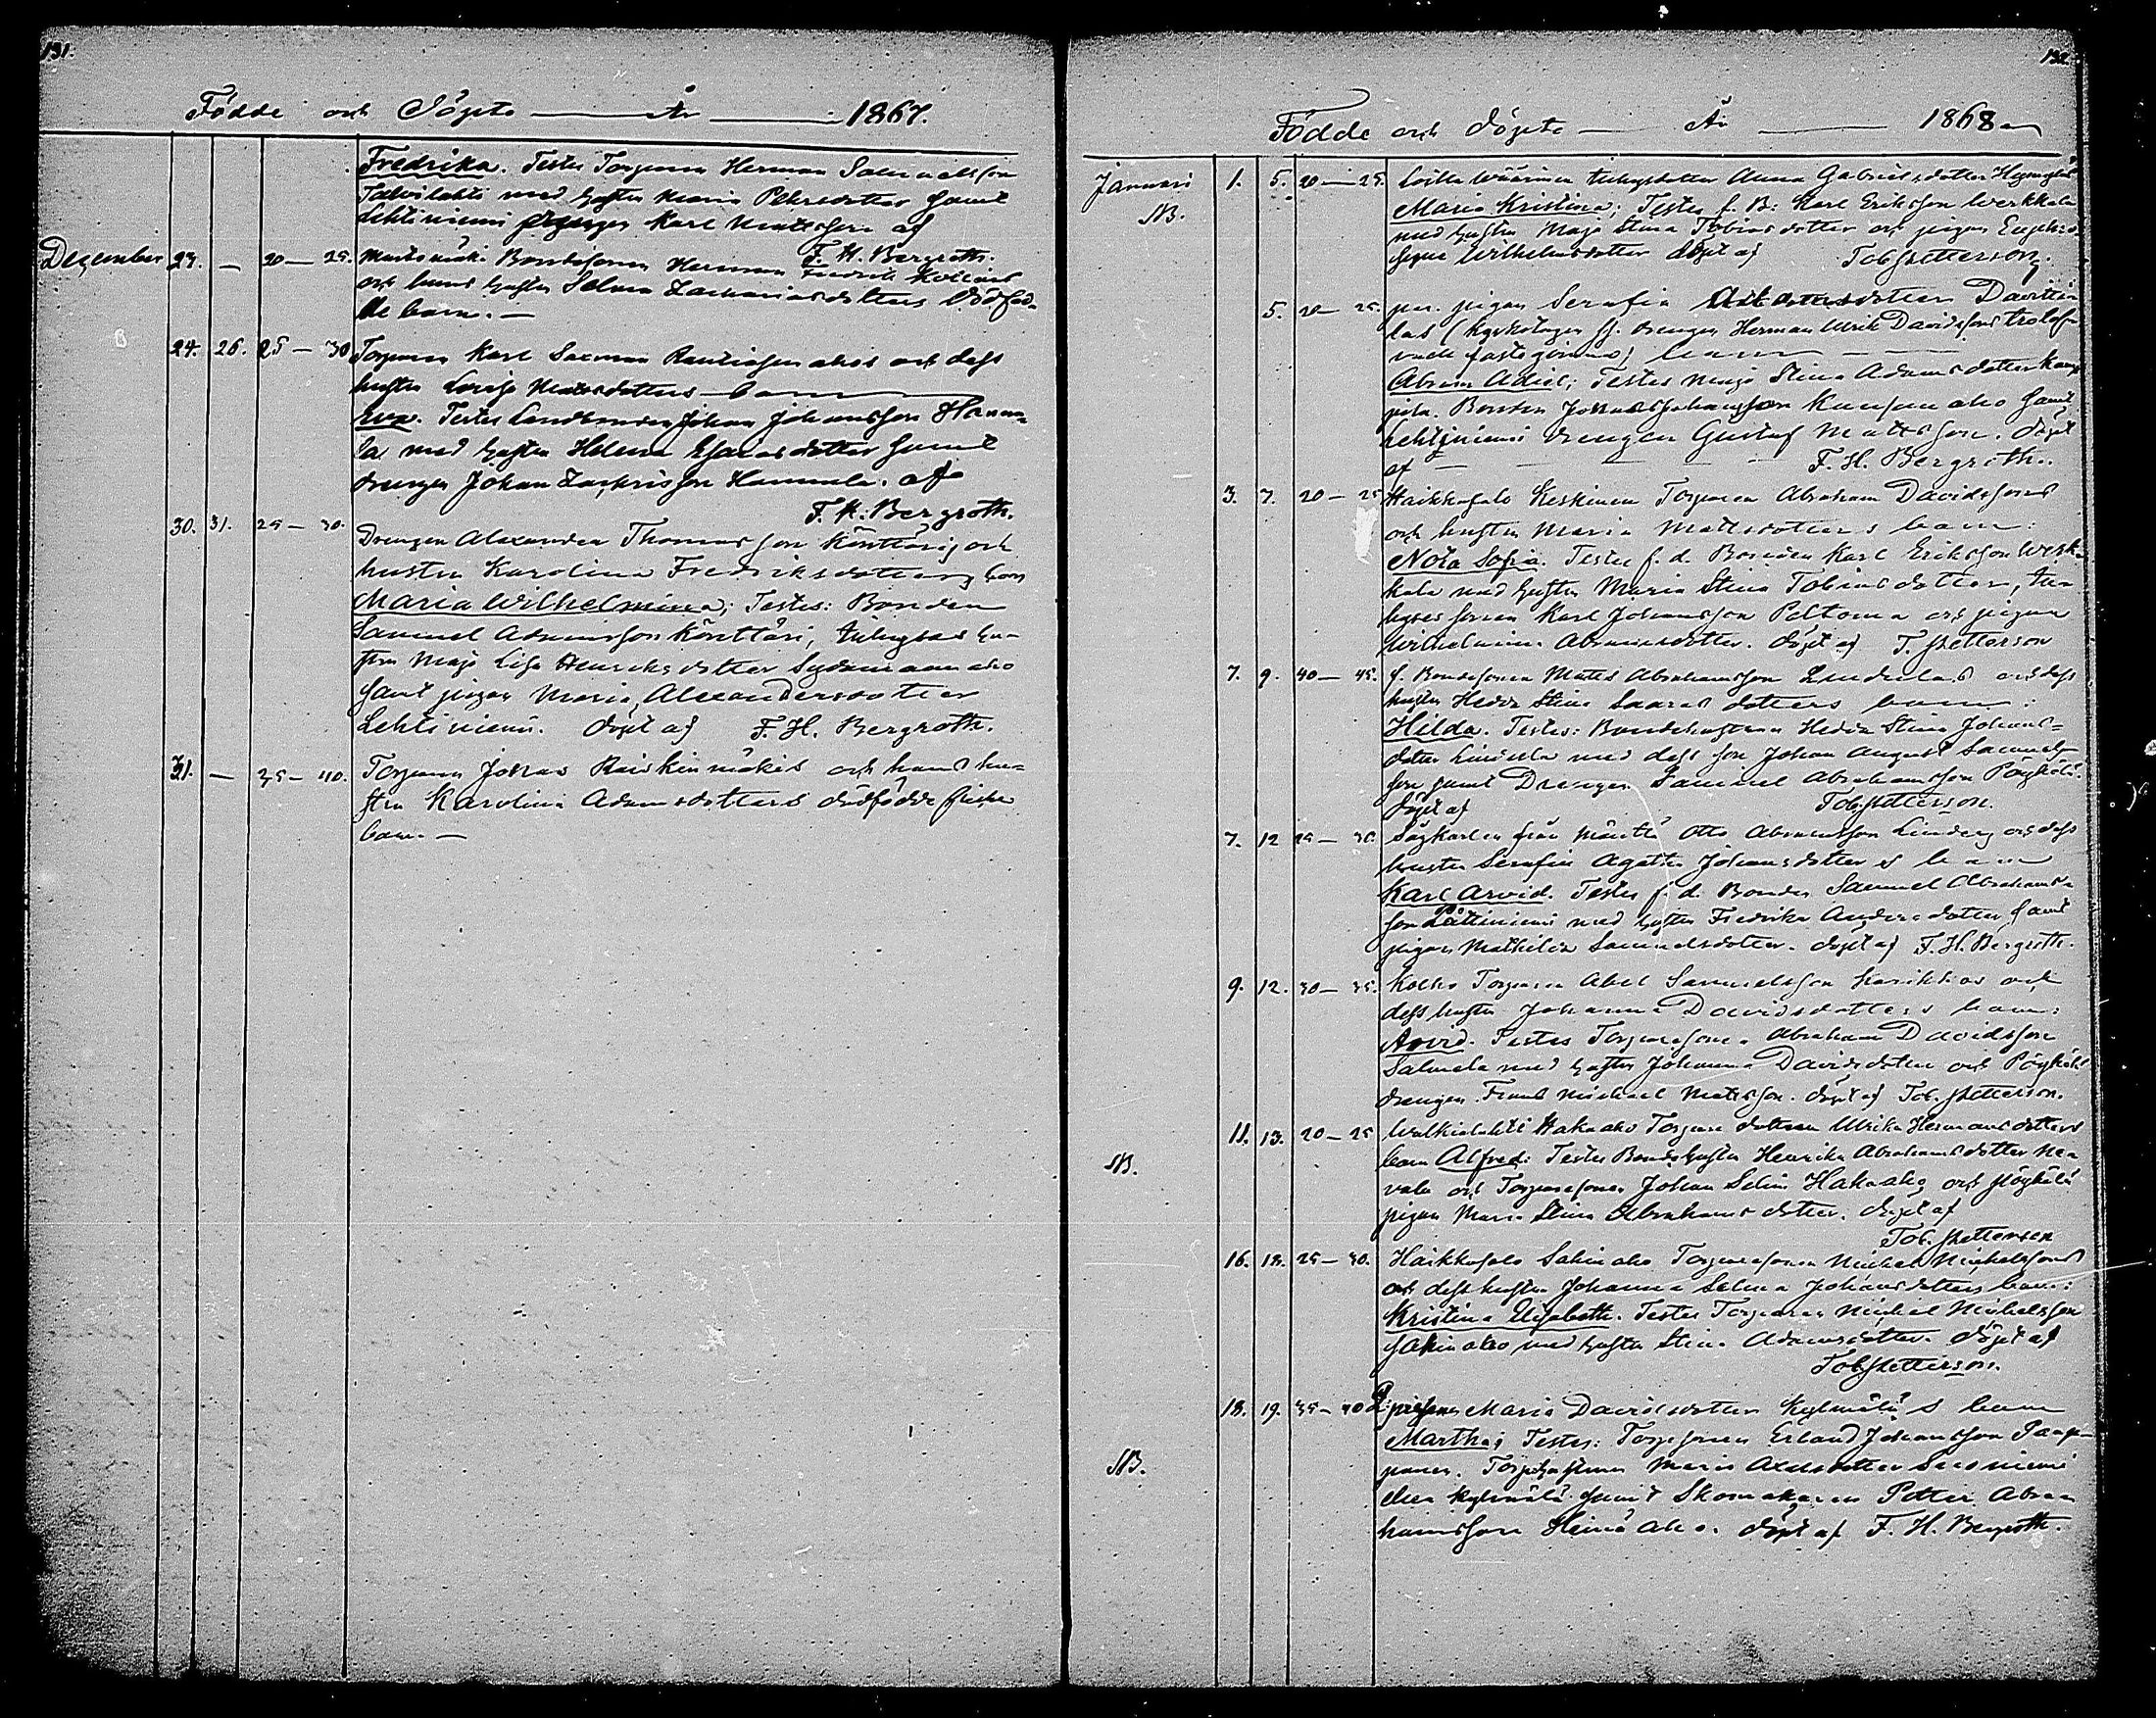 131.
Födde och Döpte — År — 1867.
Fredrika. Testes Torparen Herman Salomonsson
Talvilahti med hustru Maria Pehrsdotter samt
Lehtiniemi drengen Karl Mattsson af
F. H. Bergroth.
Dezember 23. — 20 — 25. Bondesonen Herman Fredrik
och hans hustru Selma Zachariasdotters dödföd-
de barn. —
24. 26. 25 — 30 Torparen Karl Saxman och dess
hustru Lovisa Mattsdotters barn
Eva. Testes Landbonden Johan Johansson Hannu-
la med hustru Helena Esaiasdotter samt
drengen Johan Zachrisson Hannula. af
F. H. Bergroth.
30. 31. 25 — 30. Drengen Alexander Thomasson Könttäri och
hustru Karolina Fredriksdotters barn
Maria Wilhelmina; Testes: Bonden
Samuel Adamsson Könttäri, inhyses hu-
stru Maja Lisa Henriksdotter Sydänmaanaho
samt pigan Maria Alexandersdotter
Lehtiniemi. döpt af F. H. Bergroth.
31. — 35 — 40. Torparen Jonas Raiskinmäkis och hans hu-
stru Karolina Adamsdotters dödfödde
barn. —
132.
Födde och döpte — År — 1868
Januari 1. 5. 20 — 25. inhysesdotter Anna Gabrielsdotter
NB. Maria Kristina; Testes f. B: Karl Eriksson Werkkala
med hustru Maja Stina Tobiasdotter och pigan
Wilhelmsdotter döpt af Tob. Petterson.
5. 20 — 25. pigan Serafia Davitti-
las drengen Herman Ulrik Davidssons trolof-
vade fästeqvinnas barn —
Abram Adiel; Testes Maja Stina Adamsdotter
Bonden Johansson samt
Lehtiniemi drengen Gustaf Mattsson. döpt
af — F. H. Bergroth.
3. 7. 20 — 25 Haikkosalo Keskinen Torparen Abraham Davidssons
och hustru Maria Mattsdotters barn:
Nota Sofia. Testes f. d. Bonden Karl Eriksson Werk-
kala med hustru Maria Stina Tobiasdotter, in-
hysessonen Karl Johansson Peltoma och pigan
Wilhelmina Abramsdotter. döpt af T. Petterson
7. 9. 40 — 45. f. Bondesonen Matts Abrahamsson och dess
hustru Hedda Stina dotters barn:
Hilda. Testes: Bondehustrun Hedda Stina Johans-
dotter med dess son Johan August Samuels-
son samt Drengen Samuel Abrahamsson Pöyhölä.
döpt af Tob. Petterson.
7. 12 25 — 30. Sågkarlen från Mänttä Otto Abramsson Linderg och dess
hustru Serafia Agatha Johansdotters barn
Karl Arvid. Testes f. d. Bonden Samuel Abrahams-
son med hustru Fredrika Andersdotter samt
pigan Mathilda Samuelsdotter. döpt af F. H. Bergroth.
9. 12. 30 — 35. Kolho Torparen Abel Samuelsson och
dess hustru Johanna Davidsdotters barn:
Arvid. Testes Torparesonen Abraham Davidsson
Salmela med hustru Johanna Davidsdotter och Pöyhölä
drengen Frans Michael Mattsson. döpt af Tob. Petterson.
11. 13. 20 — 25 Hakoaho Torparedottern Ulrika Hermansdotters
NB. barn Alfred: Testes Bondehustru Henrika Abrahamsdotter Ne-
vala och Torparesonen Johan Selim Hakoaho och Pöyhölä
pigan Maria Stina Abrahamsdotter. döpt af
Tob. Petterson
16. 18. 25 — 30. Haikkosalo Sakinaho Torparesonen Michel Michelssons
och dess hustru Johanna Selma Johansdotters barn:
Kristina Elisabeth. Testes Torparen Michel Michelsson
Sakinaho med hustru Stina Adamsdotter. döpt af
Tob. Petterson.
18. 19. 35 — 40 Maria Davidsdotter Kylmälä's barn
NB. Martha; Testes: Torparen Erland Johansson Paap-
panen. Torpehustrun Maria Axelsdotter
Kylmälä samt Skomakaren Petter Abra-
hamsson Heinäaho. döpt af F. H. Bergroth.